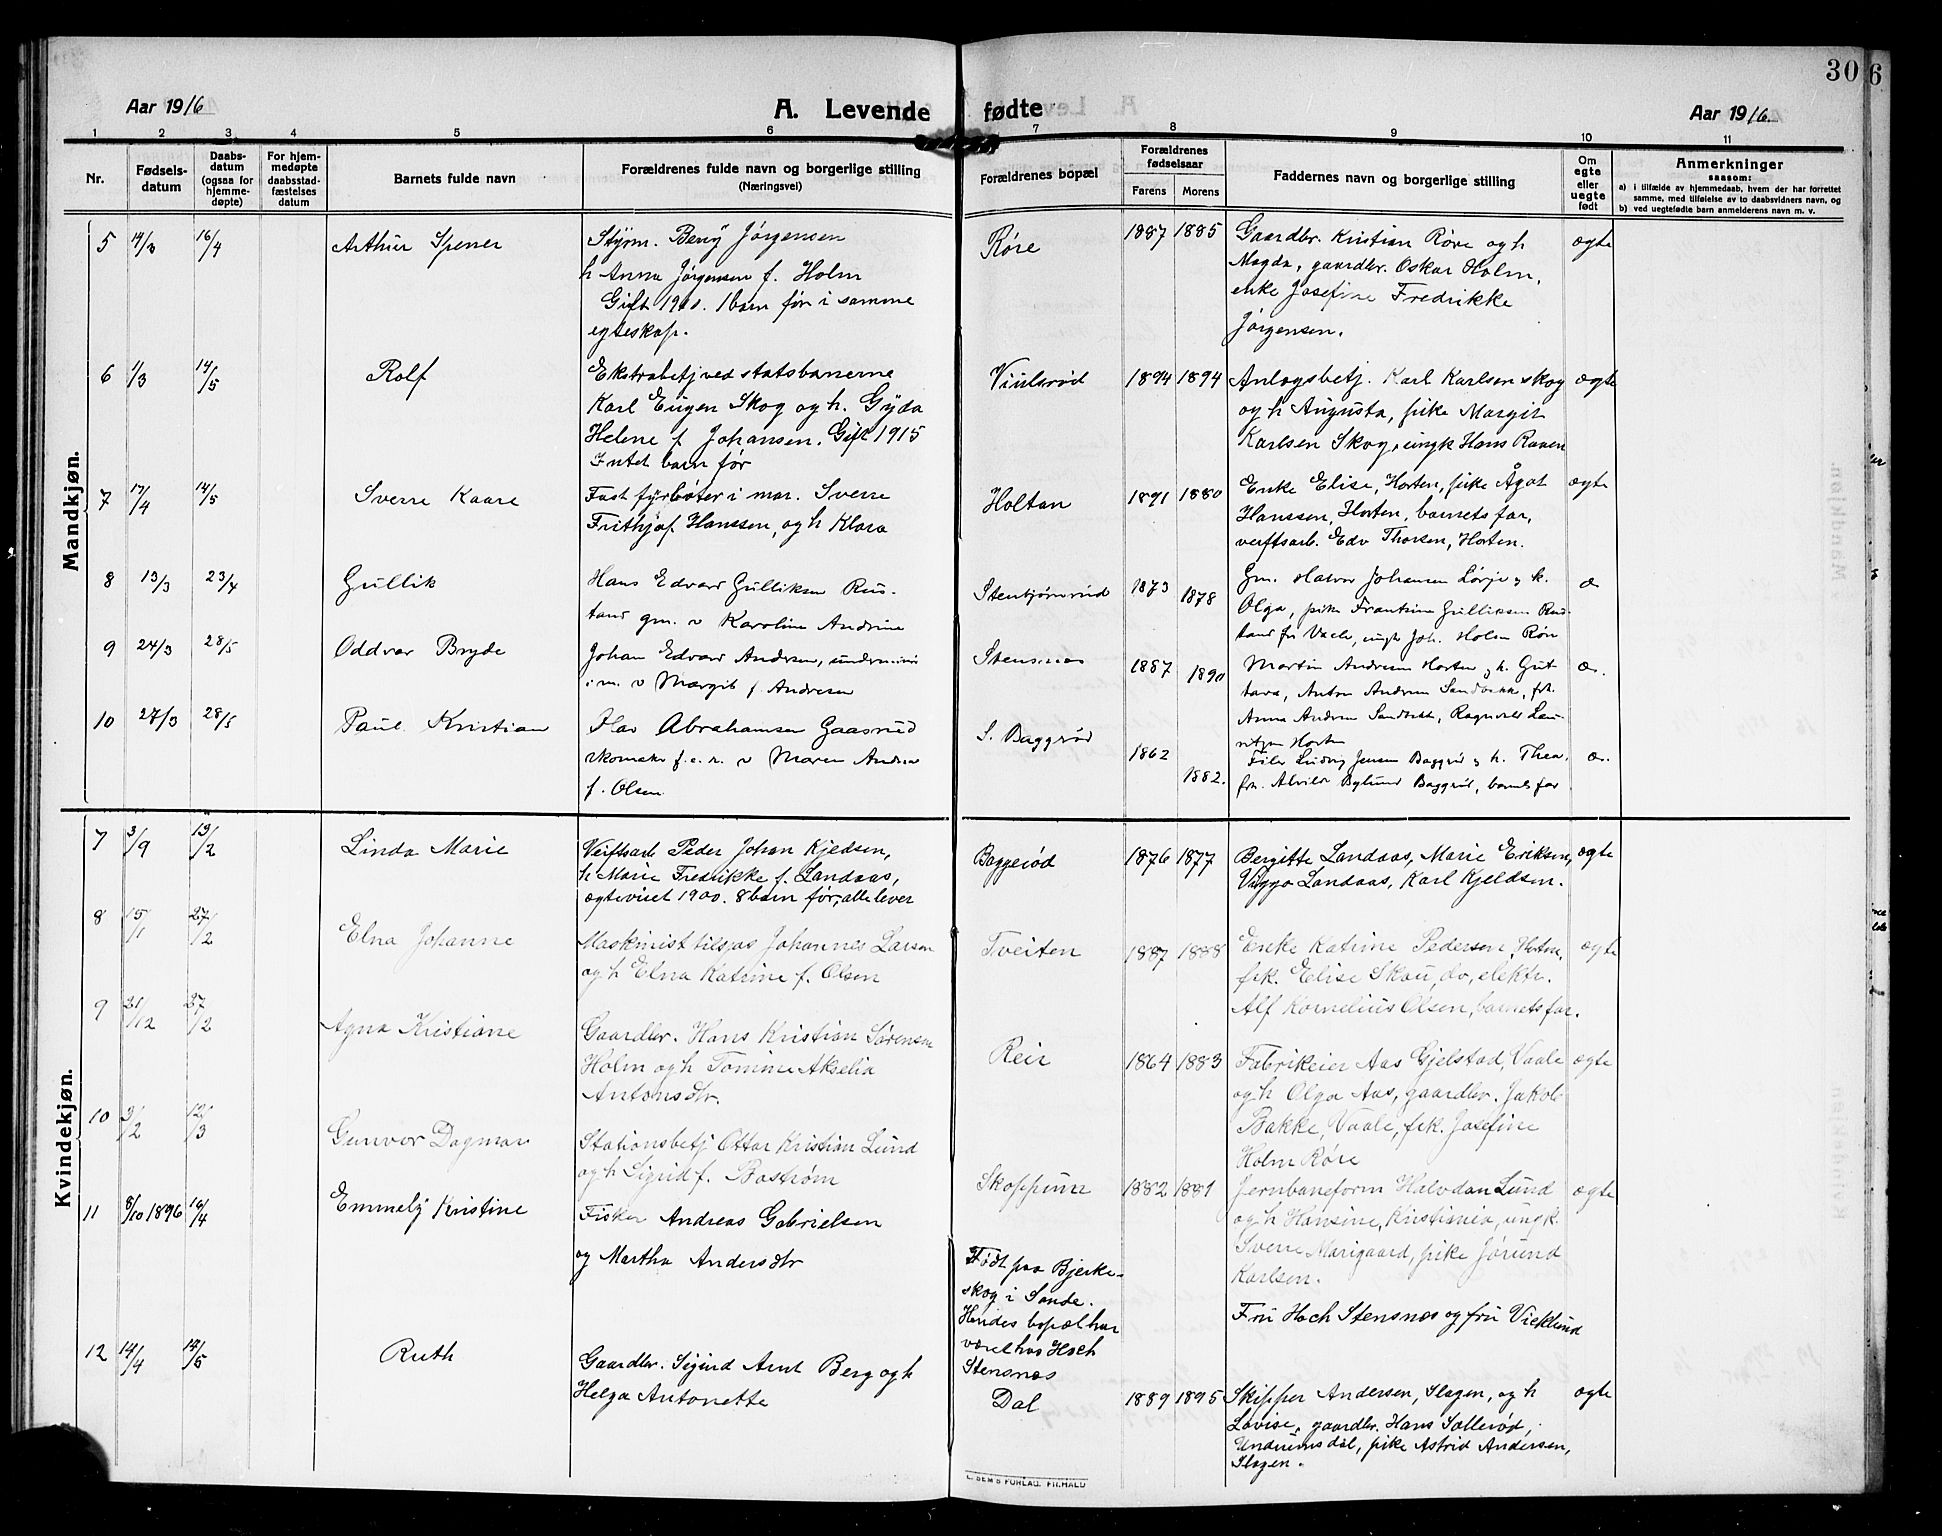 30
6
Aar 1916
A. Levende fødte
Aar 1916
1 2 3 4 5 6 7 8 9 10 11
Nr.
Fødsels-
datum
Daabs-
datum
(ogsaa for
hjemme-
døpte)
For hjem-
medøpte
daabsstad-
fæstelses
datum
Barnets fulde navn
Forældrenes fulde navn og borgerlige stilling
(Næringsvei)
Forældrenes bopæl
Forældrenes
fødselsaar
Farens Morens
Faddernes navn og borgerlige stilling
Om
egte
eller
uegte
født
Anmerkninger
saasom:
a) i tilfælde av hjemmedaab, hvem der har forrettet
samme, med tilføielse av to daabsvidners navn, og
b) ved uegtefødte barn anmelderens navn m. v.
Mandkjøn.
5 14/3 16/4 Arthur Spener
Styrm. Berg Jørgensen
h Anna Jørgensen f. Holm
Gift 1910. 1 barn før i samme
egteskap.
Røre 1887 1885
Gaardbr. Kristian Røre og h
Magda, gaardbr. Oskar Holm,
enke Josefine Fredrikke
Jørgensen.
ægte
6 1/3 14/5 Rolf
Ekstrabetj ved statsbanerne
Karl Eugen Skog og h. Gyda
Helene f Johansen. Gift 1915
Intet barn før
Viulsrød 1894 1894
Anlogsbetj. Karl Karlsen skog
og h Augusta, pike Margit
Karlsen Skog, ungk Hans Raven
ægte
7 17/4 14/5 Sverre Kaare
Fast fyrbøter i mar. Sverre
Frithjof Hanssen, og h Klara
Holtan 1891 1880
Enke Elise, Horten, pike Ågot
Hanssen, Horten, barnets far,
verftsarb. Edv Thorsen, Horten.
ægte
8 13/3 23/4 Gullik
Hans Edvard Gulliksen Rus-
tand gm. v Karoline Andrine
Stenbjønnrød 1873 1878
Gm. Halvor Johansen Lørje og h.
Olga, pike Frantsine Gulliksen Rus-
tand fri Vaale, ungk Joh. Holm Røre
æ
9 24/3 28/5 Oddvar Bryde
Johan Edvard Andersen,
i m. v Margit f Andresen
Stensnæs 1887 1890
Martin Andresen Horten og h. Gus
tava, Anton Andresen Sandbekk, frk.
Anna Andresen Sandbekk, Ragnvald Lau-
ritzen Horten
æ.
10 27/3 28/5 Paul Kristian
Olav Abrahamsen Gaasrud
skomaker f.e.n. v Maren Andrea
f. Olsen
S. Baggrød 1862 1882.
Ludvig Jensen Baggrød og h. Thea,
frk. Alvilda Bylund Baggrød, barnets far
æ.
Kvindekjøn.
7 3/9 13/2 Linda Marie
Verftsarb Peder Johan Kjeldsen,
h Marie Fredrikke f. Landaas,
ægteviet 1900. 8 barn før, alle lever
Baggerød 1876 1877
Bergitte Landaas, Marie Eriksen,
Viggo Landaas, Karl Kjeldsen.
ægte
8 15/1 27/2 Elna Johanne
Maskinist tilsjøs Johannes Larsen
og h Elna Katrine f. Olsen
Tveiten 1887 1888
Enke Katrine Pedersen, Horten,
frk. Elise Skau, do, elektr.
Alf Kornelius Olsen, barnets far.
ægte
9 21/12 27/2 Agna Kristiane
Gaardbr. Hans Kristian Sørensen
Holm og h Tomine Akselia
Antonsdtr.
Reir 1864 1883
Fabrikeier Aas Gjelstad, Vaale
og h Olga Aas, gaardbr. Jakob
Bakke, Vaale, frk. Josefine
Holm Røre
ægte
10 3/2 12/3 Gunvor Dagmar
Stationsbetj Ottar Kristian Lund
og h Sigrid f. Bostrøm
Skoppum 1882 1881
Jernbaneform Halvdan Lund
og h Hansine, Kristiania, ungk.
Sverre Marigaard, pike Jørund
Karlsen.
ægte
11 8/10 1896 16/4 Emmely Kristine
Fisker Andreas Gabrielsen
og Martha Andersdtr
Født paa Bjerke-
skog i Sande.
Hendes bopæl har
været hos Hoch
Stensnæs
Fru Hoch Stensnæs og fru Vicklund
12 14/4 14/5 Ruth
Gaardbr. Sigurd Arnt Berg og h
Helga Antonette
Dal 1889 1895
Skipper Andersen, Slagen, og h
Lovise, gaardbr. Hans Sollerød,
Undrumsdal, pike Astrid Andersen,
Slagen.
ægte
E. SEM'S FORLAG, FR.HALD